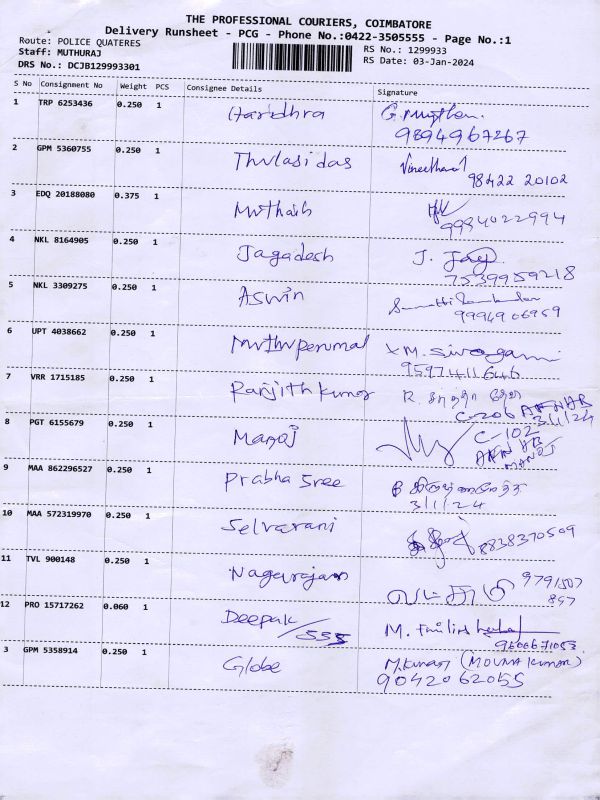 THE PROFESSIONAL COURIERS, COIMBATORE
Delivery Runsheet - PCG - Phone No.:0422-3505555 - Page No.:1
Route: POLICE QUATERES
RS No.: 1299933
Staff: MUTHURAJ
RS Date: 03-Jan-2024
DRS No.: DCJB129993301
S No Consignment No Weight PCS Consignee Details Signature
1 TRP 6253436 0.250 1 Haridhra
9894967267
2 GPM 5360755 0.250 1 Thulasidas
98422 20102
3 EDQ 20188080 0.375 1
9994022994
4 NKL 8164905 0.250 1 Jagadesh J.
7539959218
5 NKL 3309275 0.250 1 Aswin
9994906959
6 UPT 4038662 0.250 1 Muthuperumal M. Sivagami
9597411646
7 VRR 1715185 0.250 1 Ranjith kumar R.
C-206 ARNAB
3/1/24
8 PGT 6155679 0.250 1 Manoj C-102
ARNAB
MANOJ
9 MAA 862296527 0.250 1 Prabha Sree
3/1/24
10 MAA 572319970 0.250 1 Selvarani 8838370509
11 TVL 900148 0.250 1 Nagarajan 9791507
897
12 PRO 15717262 0.060 1 Deepak/555 M.
9600671053
3 GPM 5358914 0.250 1 Globe M.Kumar (MOUNA Kumar)
9042062055